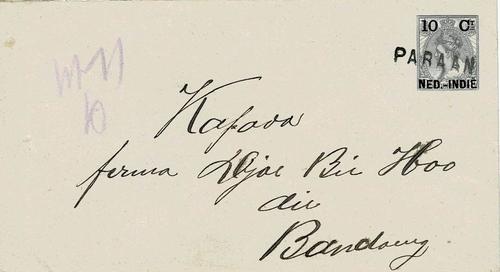 10 Ct
PARAAN
NED.-INDIË
Kapada
firma Djoe Bie Hoo
di
Bandoeng